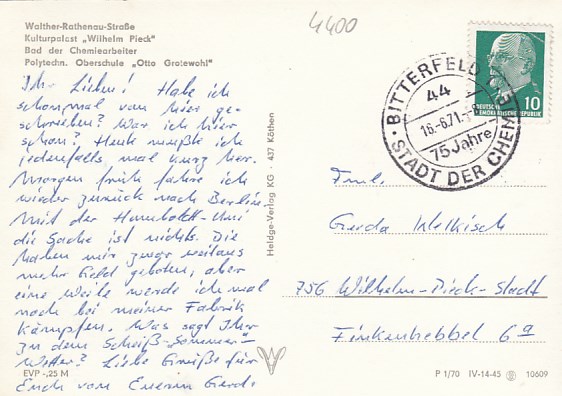 Walther-Rathenau-Straße
Kulturpalast „Wilhelm Pieck"
Bad der Chemiearbeiter
Polytechn. Oberschule „Otto Grotewohl"
4400
Ihr Lieben! Habe ich
schonmal von hier ge-
schrieben? War ich hier
schon? Heute mußte ich
jedenfalls mal kurz her.
Morgen früh fahre ich
wieder zurück nach Berlin.
Mit der Humboldt-Uni
die Sache ist nichts. Die
haben mir zwar weitaus
mehr Geld geboten, aber
eine Weile werde ich mal
noch bei meiner Fabrik
kämpfen. Was sagt Ihr
zu dem Scheiß-Sommer-
Wetter? Liebe Grüße für
Euch von Eurem Gerd.
EVP -,25 M
Heldge-Verlag KG · 437 Köthen
BITTERFELD
44
16-6.71
75 Jahre
STADT DER CHEMIE
DEUTSCHE
DEMOKRATISCHE REPUBLIK
10
Fml.
Gerda Welkisch
756 Wilhelm-Pieck-Stadt
Finkenhebbel 6a
P 1/70 IV-14-45 10609